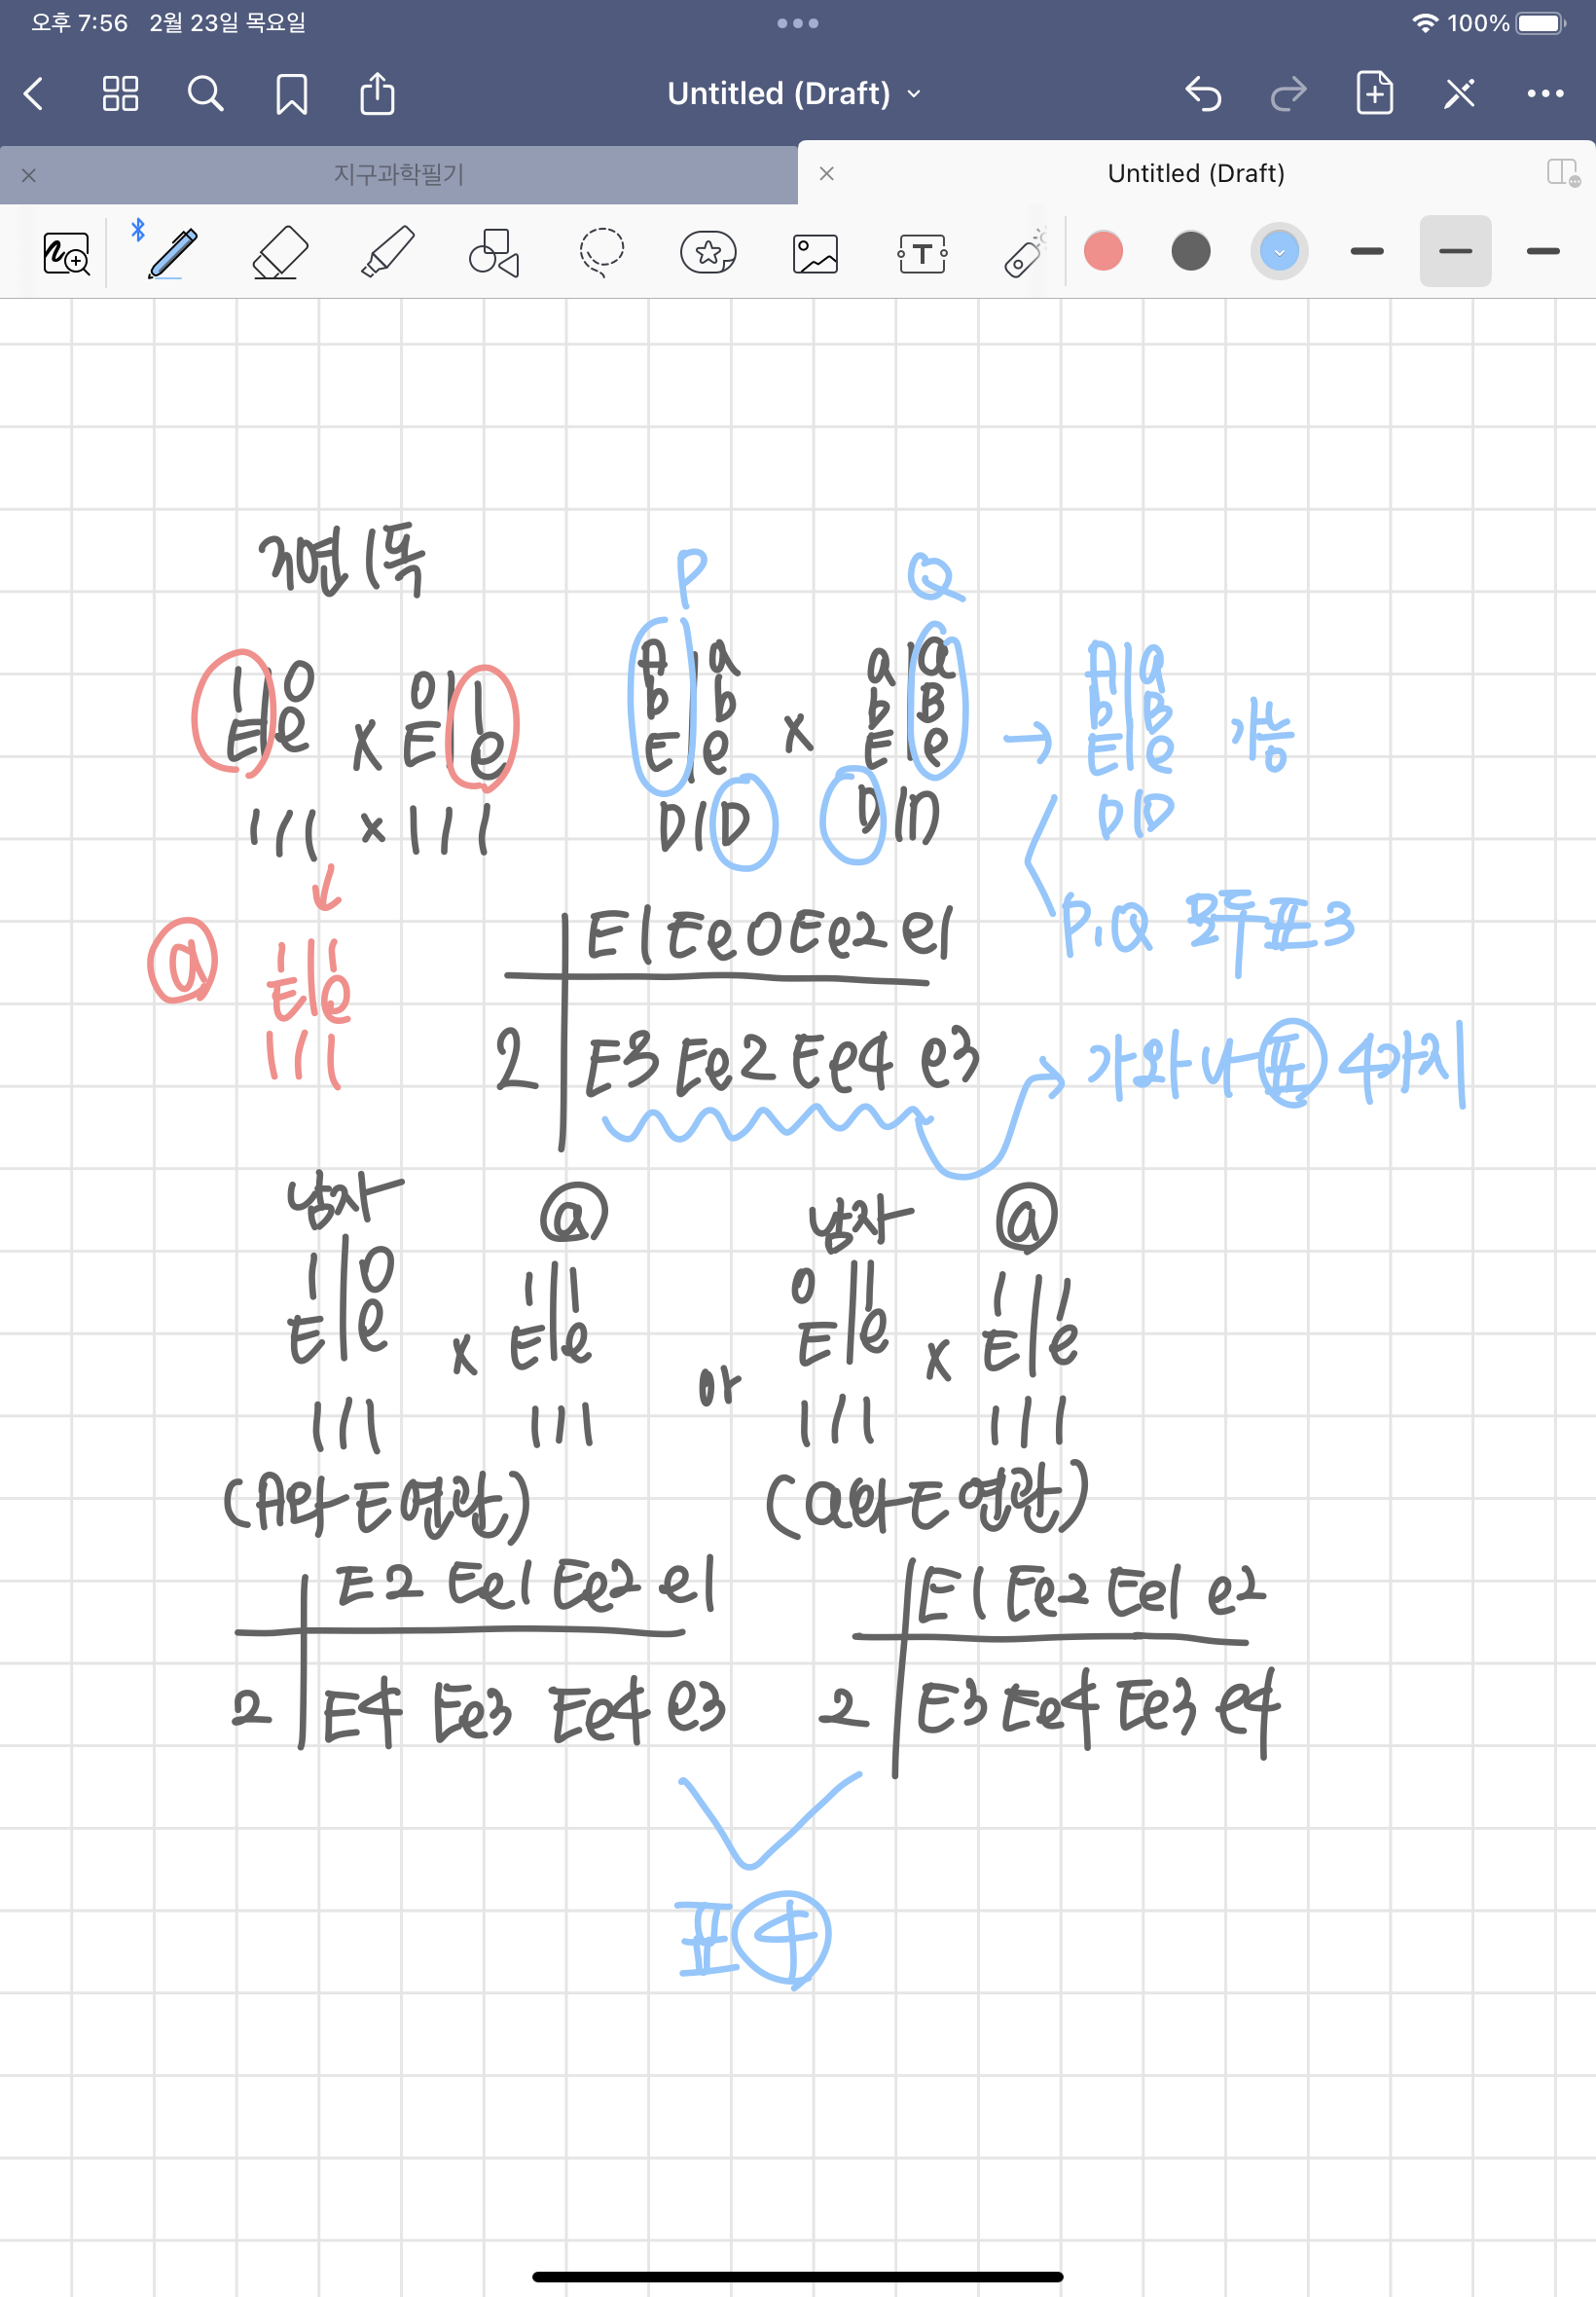 오후 7:56 2월 23일 목요일
100%
Untitled (Draft)
지구과학필기
Untitled (Draft)
T
3연 1독
P Q
1 0 0 1 A a a a A a
E e X E e b b b B b B 가능
E e x E e → E e
1 1 1 x 1 1 1 D D D D D
a 1 1 E1 Ee0 Ee2 e1 P, Q 모두 표 3
E e
1 1 1 2 E3 Ee2 Ee4 e3 → 가와 나 표 4가지
남자 ⓐ 남자 ⓐ
1 0 1 1 0 1 1 1
E e x E e or E e x E e
1 1 1 1 1 1 1 1 1 1 1 1
(A와 E 연관) (a와 E 연관)
E2 Ee1 Ee2 e1 E1 Ee2 Ee1 e2
2 E4 Ee3 Ee4 e3 2 E3 Ee4 Ee3 e4
표 4